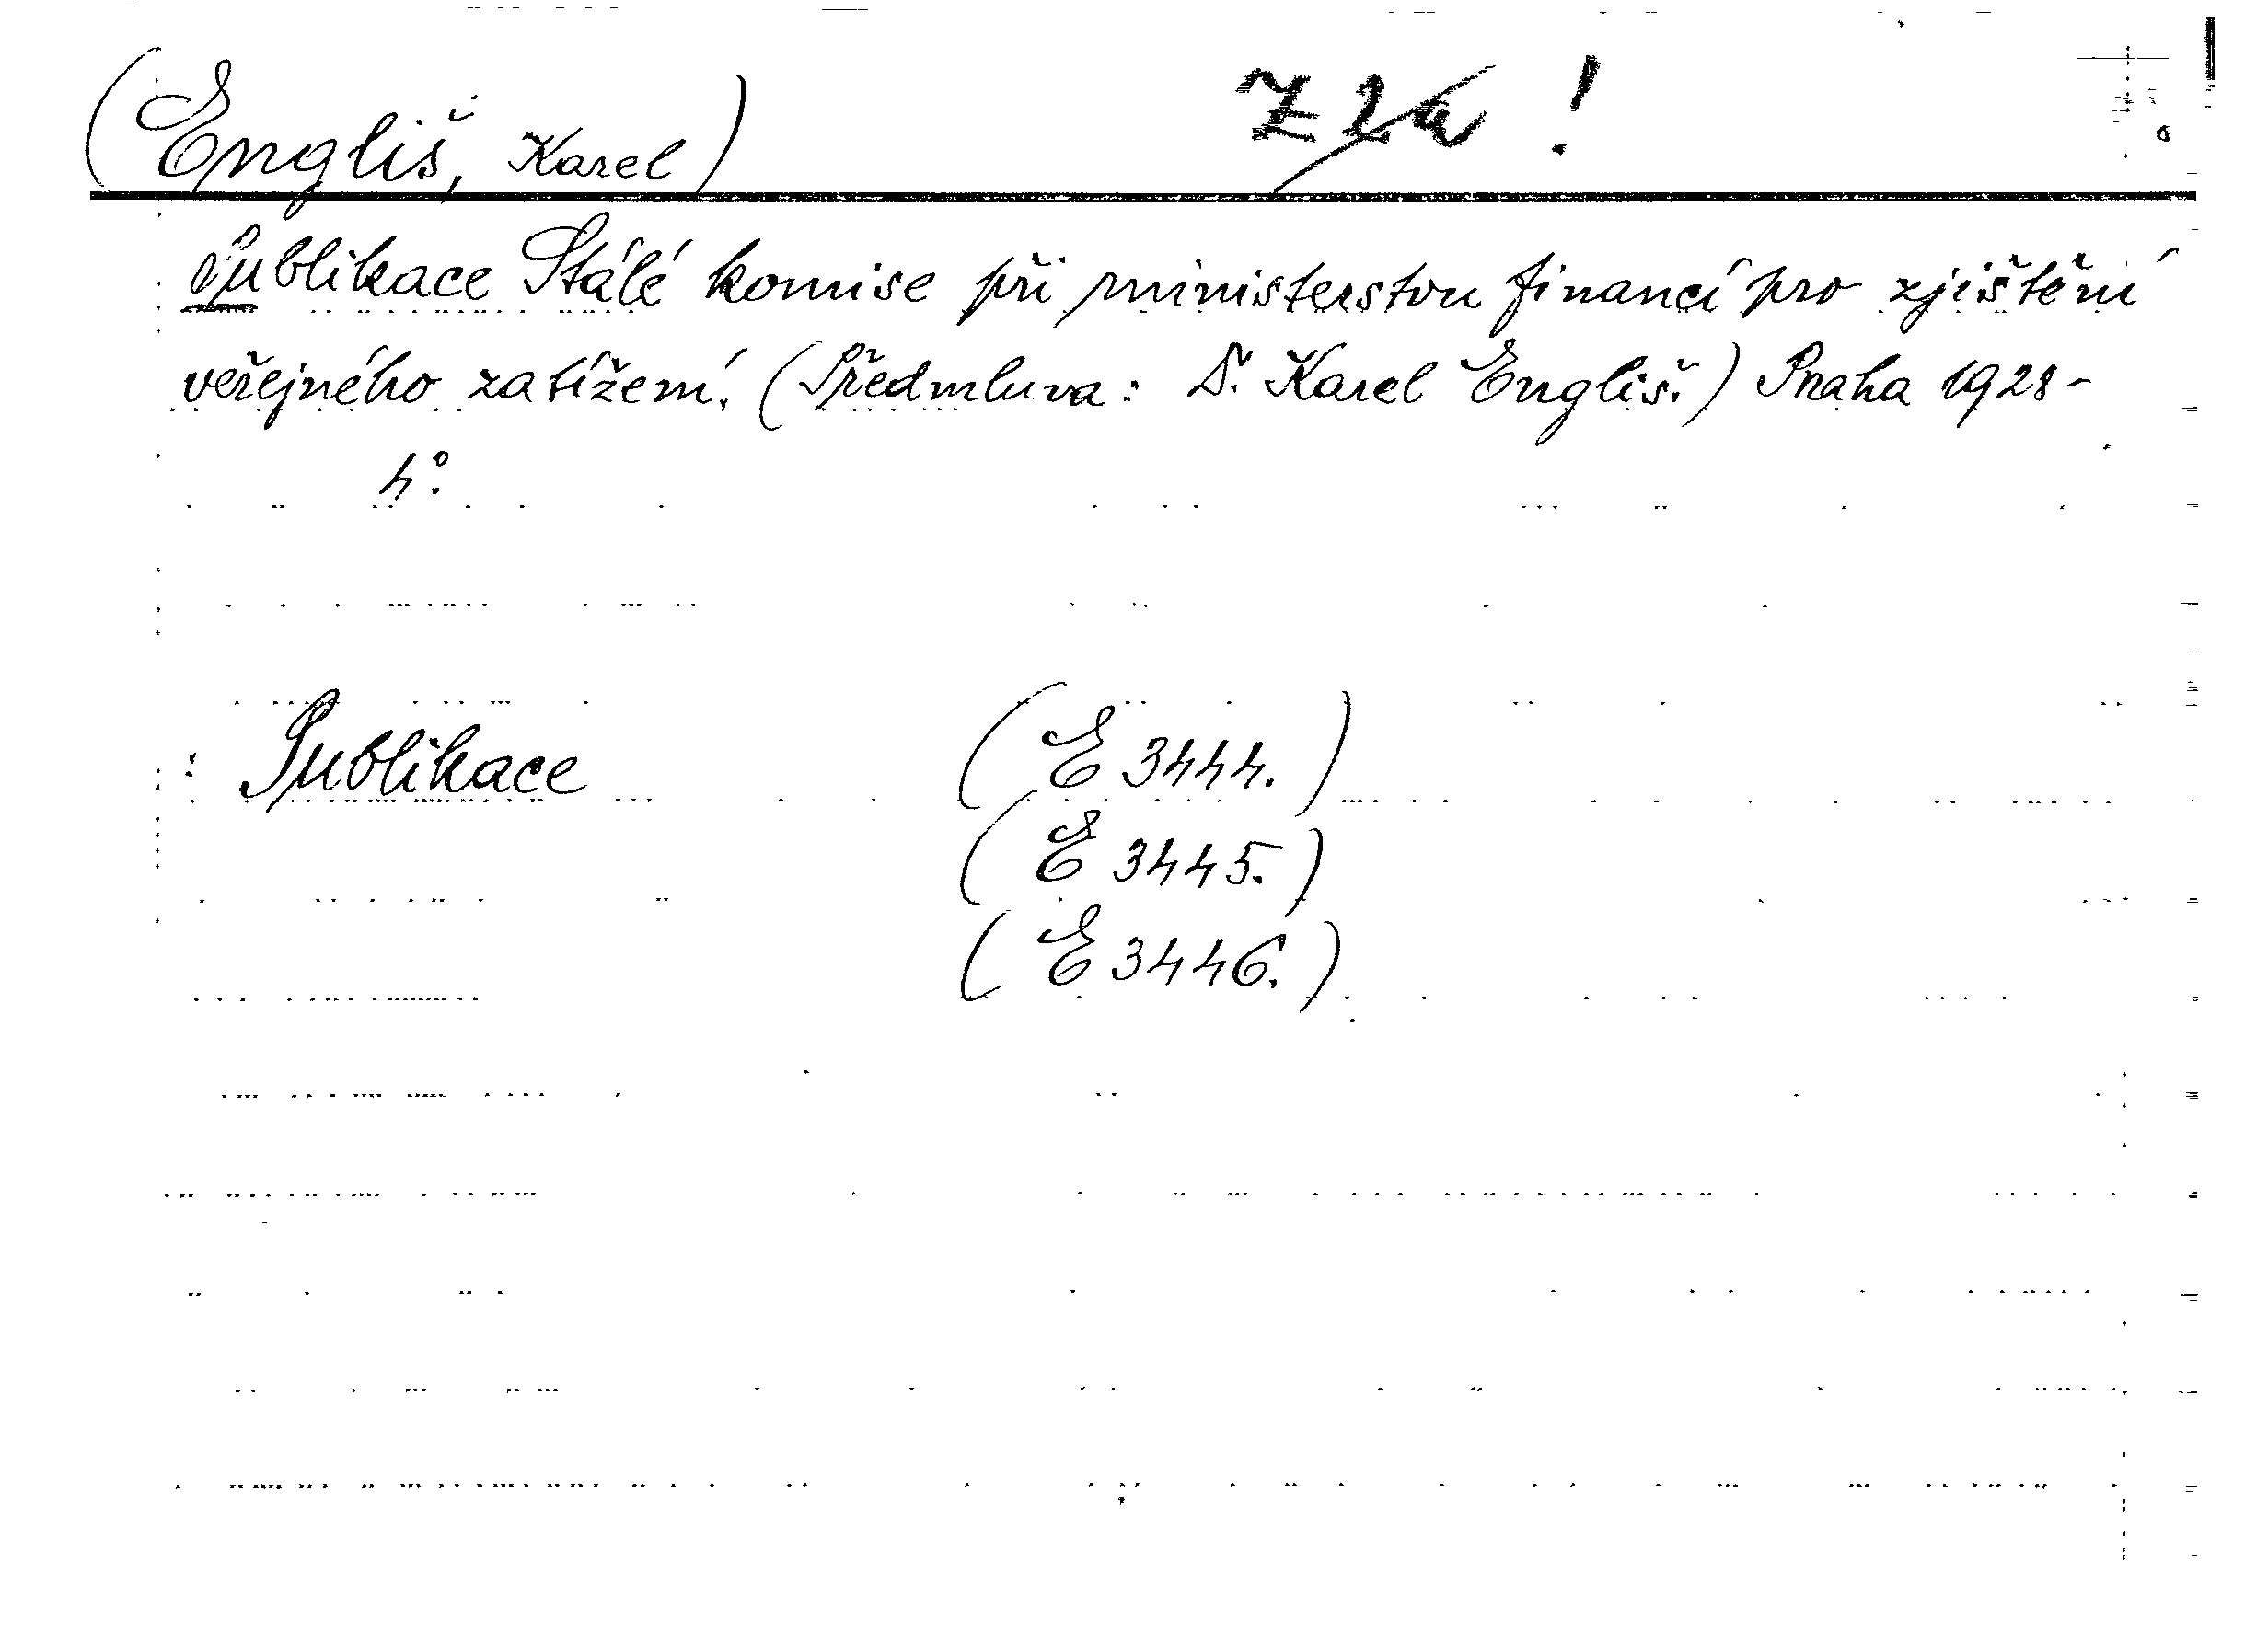 (Engliš, Karel)
Publikace Stálé komise při ministerstvu financí pro zjištění
veřejného zatížení. (Předmluva: Dr. Karel Engliš.) Praha 1928-
4°.
: Publikace (E 3444.)
(E 3445.)
(E 3446.)